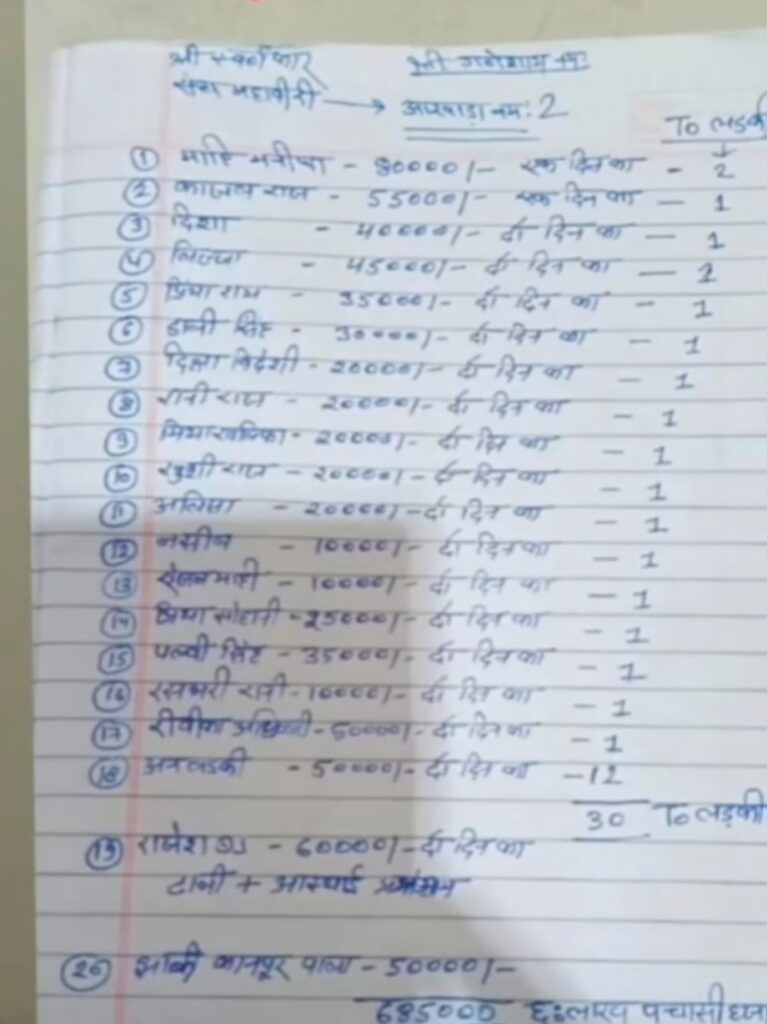 श्री स्वर्णकार श्री गणेशाय नमः
संघ महावीरी → अखाड़ा नम: 2
To लड़की
① माहि मनीषा - 80000/- एक दिन का - 2
② काजल राज - 55000/- एक दिन का - 1
③ दिशा - 40000/- दो दिन का - 1
④ - 45000/- दो दिन का -
⑤ प्रिया राय - 35000/- दो दिन का - 1
⑥ डाली सिंह - 30000/- दो दिन का - 1
⑦ विदेशी - 20000/- दो दिन का - 1
⑧ रानी राज - 20000/- दो दिन का - 1
⑨ - 20000/- दो दिन का - 1
⑩ खुशी राज - 20000/- दो दिन का - 1
⑪ अलिसा - 20000/- दो दिन का - 1
⑫ - 10000/- दो दिन का - 1
⑬ - 10000/- दो दिन का - 1
⑭ प्रिया - 25000/- दो दिन का - 1
⑮ पल्वी सिंह - 35000/- दो दिन का - 1
⑯ रसभरी रानी - 10000/- दो दिन का - 1
⑰ - 50000/- दो दिन का - 1
⑱ लडकी - 50000/- दो दिन का - 12
30 To लड़की
⑲ राजेश DJ - 60000/- दो दिन का
टाली +
⑳ झाकी कानपूर वाला - 50000/-
685000 छ:लाख पचासी हजा